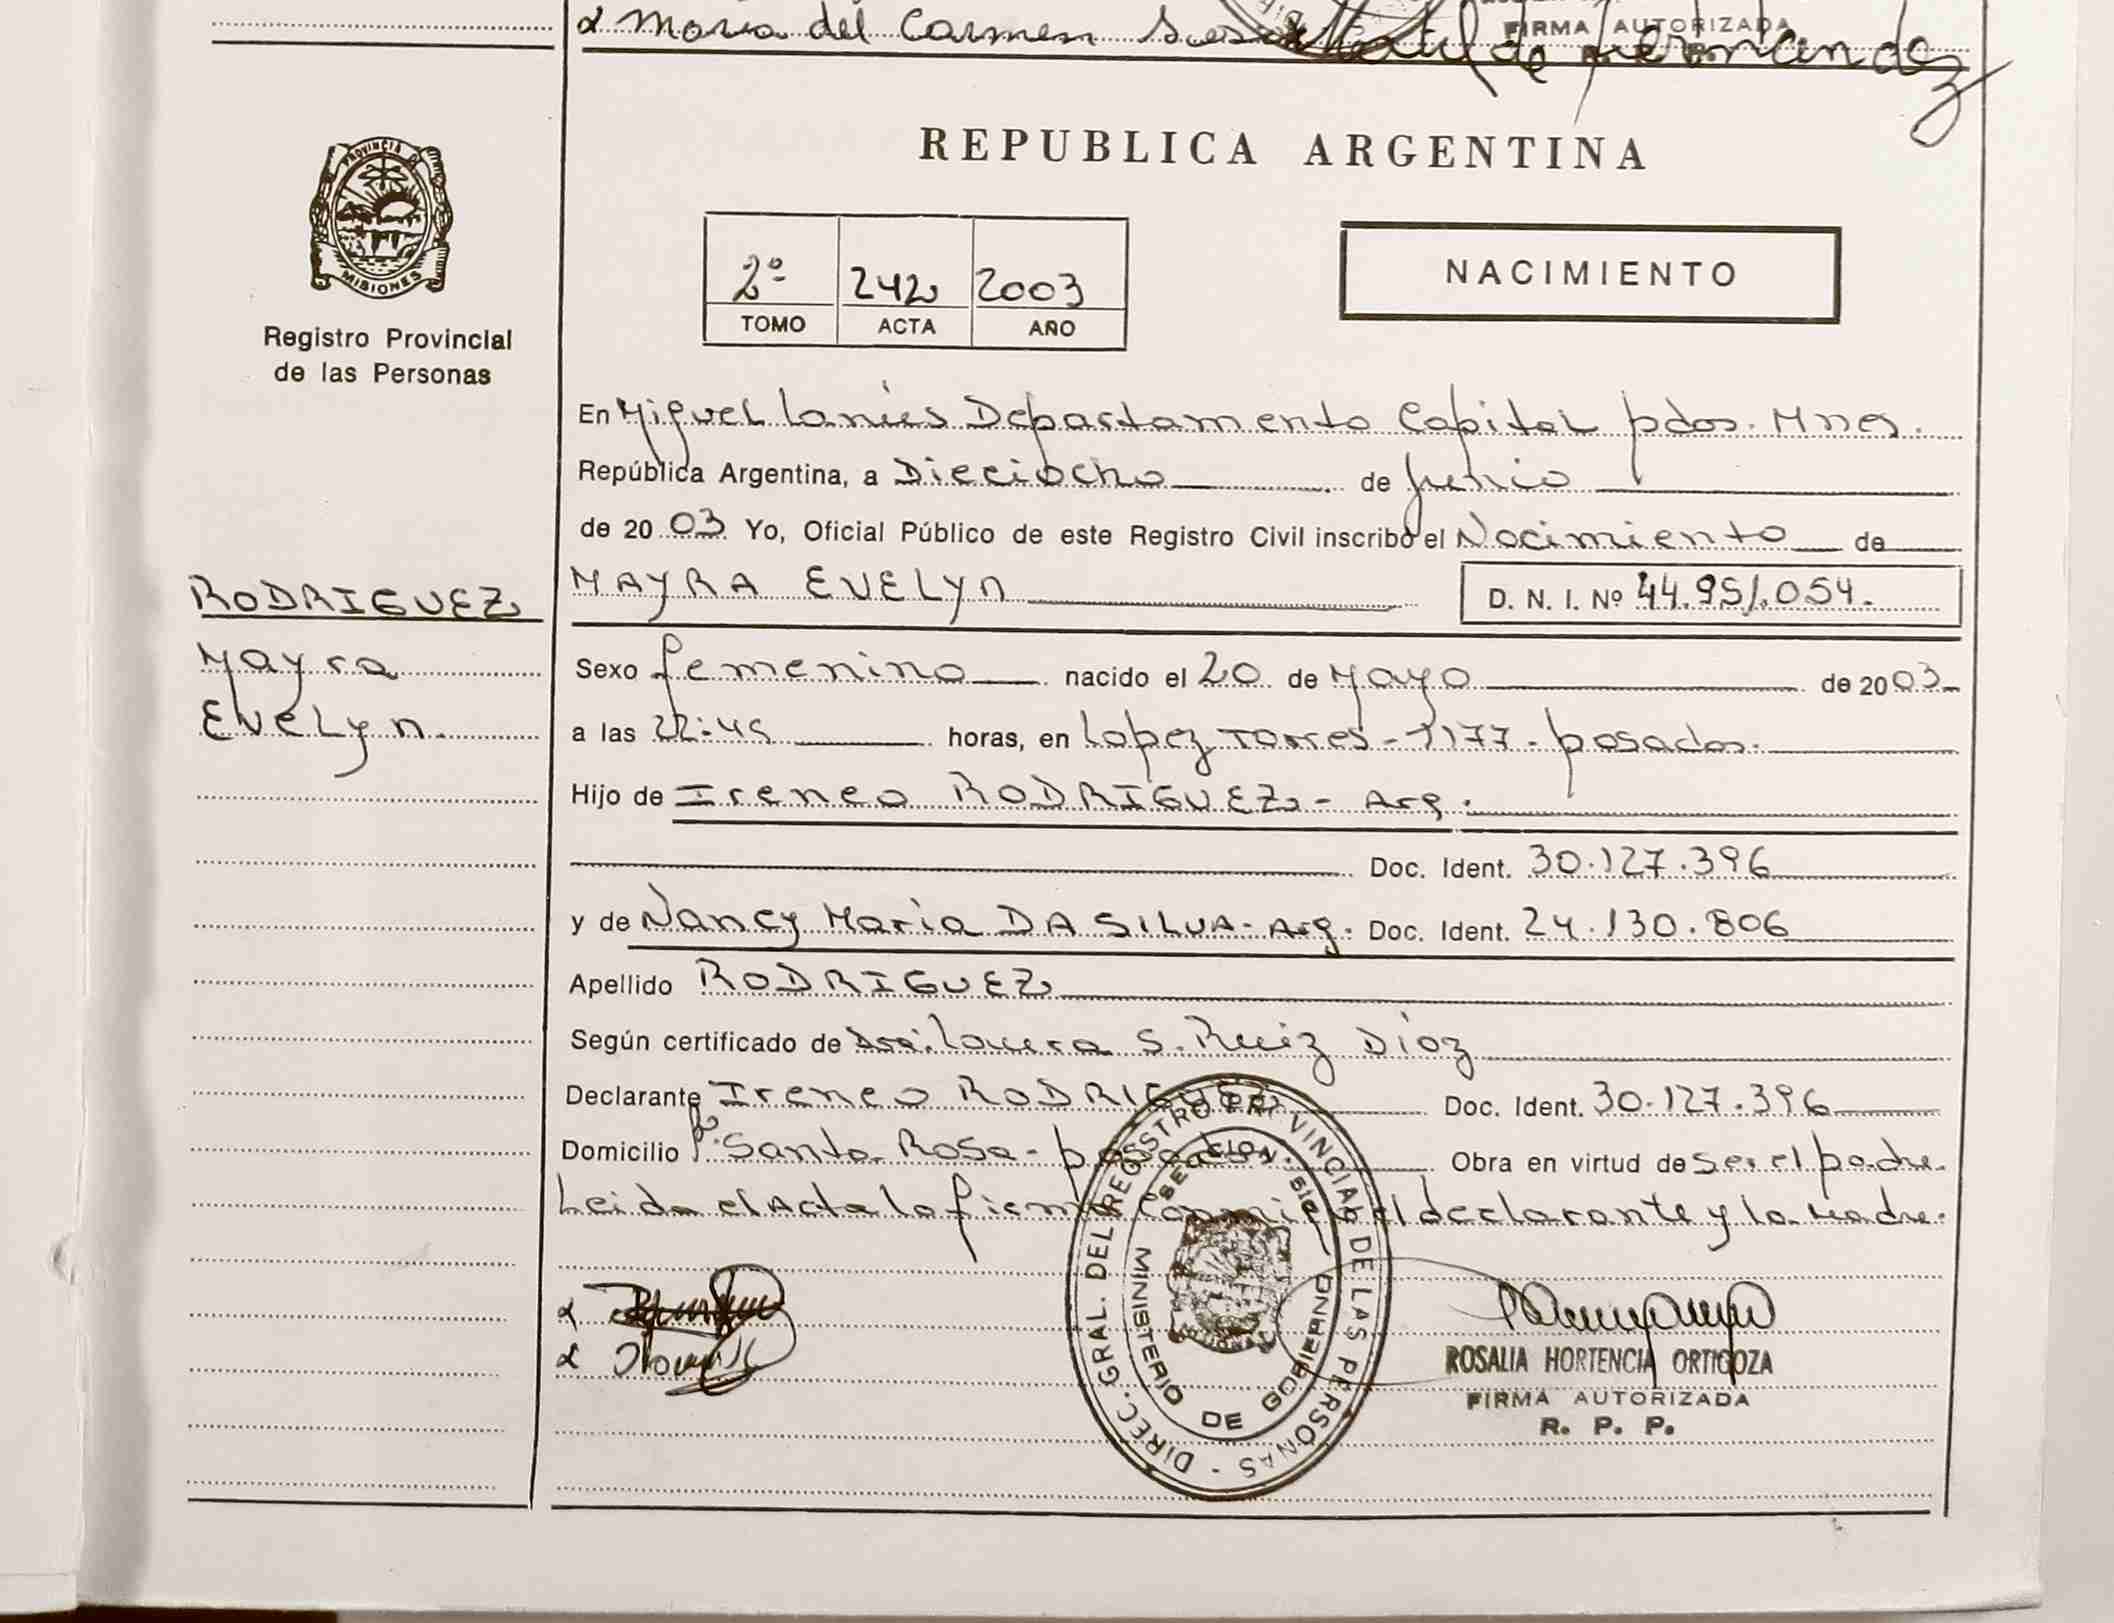 α Maria del Carmen de Fernandez
FIRMA AUTORIZADA
PROVINCIA D MISIONES
Registro Provincial
de las Personas
REPUBLICA ARGENTINA
2º 242 2003
TOMO ACTA AÑO
NACIMIENTO
En Miguel Lanús Departamento Capital pdas. Mnes.
República Argentina, a Dieciocho de Junio
de 2003 Yo, Oficial Público de este Registro Civil inscribo el Nacimiento de
RODRIGUEZ
Mayra
Evelyn.
MAYRA EVELyn
D. N. I. Nº 44.951.054.
Sexo femenino nacido el 20 de Mayo de 2003
a las 22:45 horas, en Lopez Torres - 1177 - posadas.
Hijo de Ireneo RODRIGUEZ - Arg.
Doc. Ident. 30.127.396
y de Nancy Maria DA SILVA - Arg. Doc. Ident. 24.130.806
Apellido RODRIGUEZ
Según certificado de Dra. Laura S. Ruiz Díaz
Declarante Ireneo RODRIGUEZ Doc. Ident. 30.127.396
Domicilio Bº Santa Rosa - posadas. Obra en virtud de ser el padre.
Leida el Acta la firma conmigo el declarante y la Madre.
DIREC. GRAL. DEL REGISTRO PROVINCIAL DE LAS PERSONAS - MINISTERIO DE GOBIERNO
ROSALIA HORTENCIA ORTIGOZA
FIRMA AUTORIZADA
R. P. P.